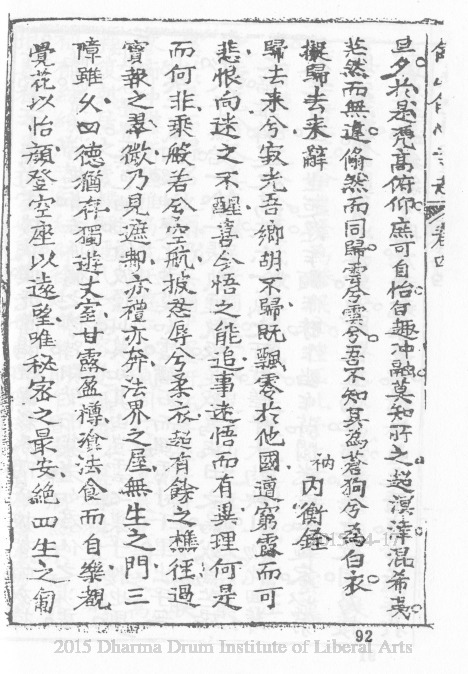 卷四
旦夕於是凭高俯仰庶可自怡旨趣冲融莫知所之超溟涬混希夷
茫然而無邊翛然而同歸雲兮雲兮吾不知其為蒼狗兮為白衣
擬歸去来辭 衲内衡銓
歸去来兮寂光吾鄉胡不歸既飄零於他國遭窮露而可
悲恨向迷之不醒喜今悟之能追事迷悟而有異理何是
而何非乘般若兮空航披忍辱兮柔衣起有餘之樵徑過
寶報之翠微乃見遮那亦禮亦奔法界之屋無生之門三
障雖久四德猶存獨遊丈室甘露盈樽飡法食而自樂觀
覺花以怡顔登空座以遠望唯秘密之最安絶四生之匍
92
2015 Dharma Drum Institute of Liberal Arts